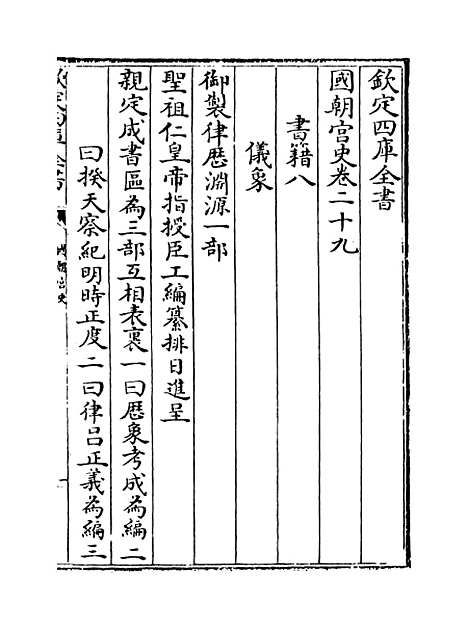 欽定四庫全書
國朝宫史卷二十九
書籍八
儀象
御製律歷淵源一部
聖祖仁皇帝指授臣工編纂排日進呈
親定成書區為三部互相表裏一曰歷象考成為編二
曰揆天察紀明時正度二曰律吕正義為編三